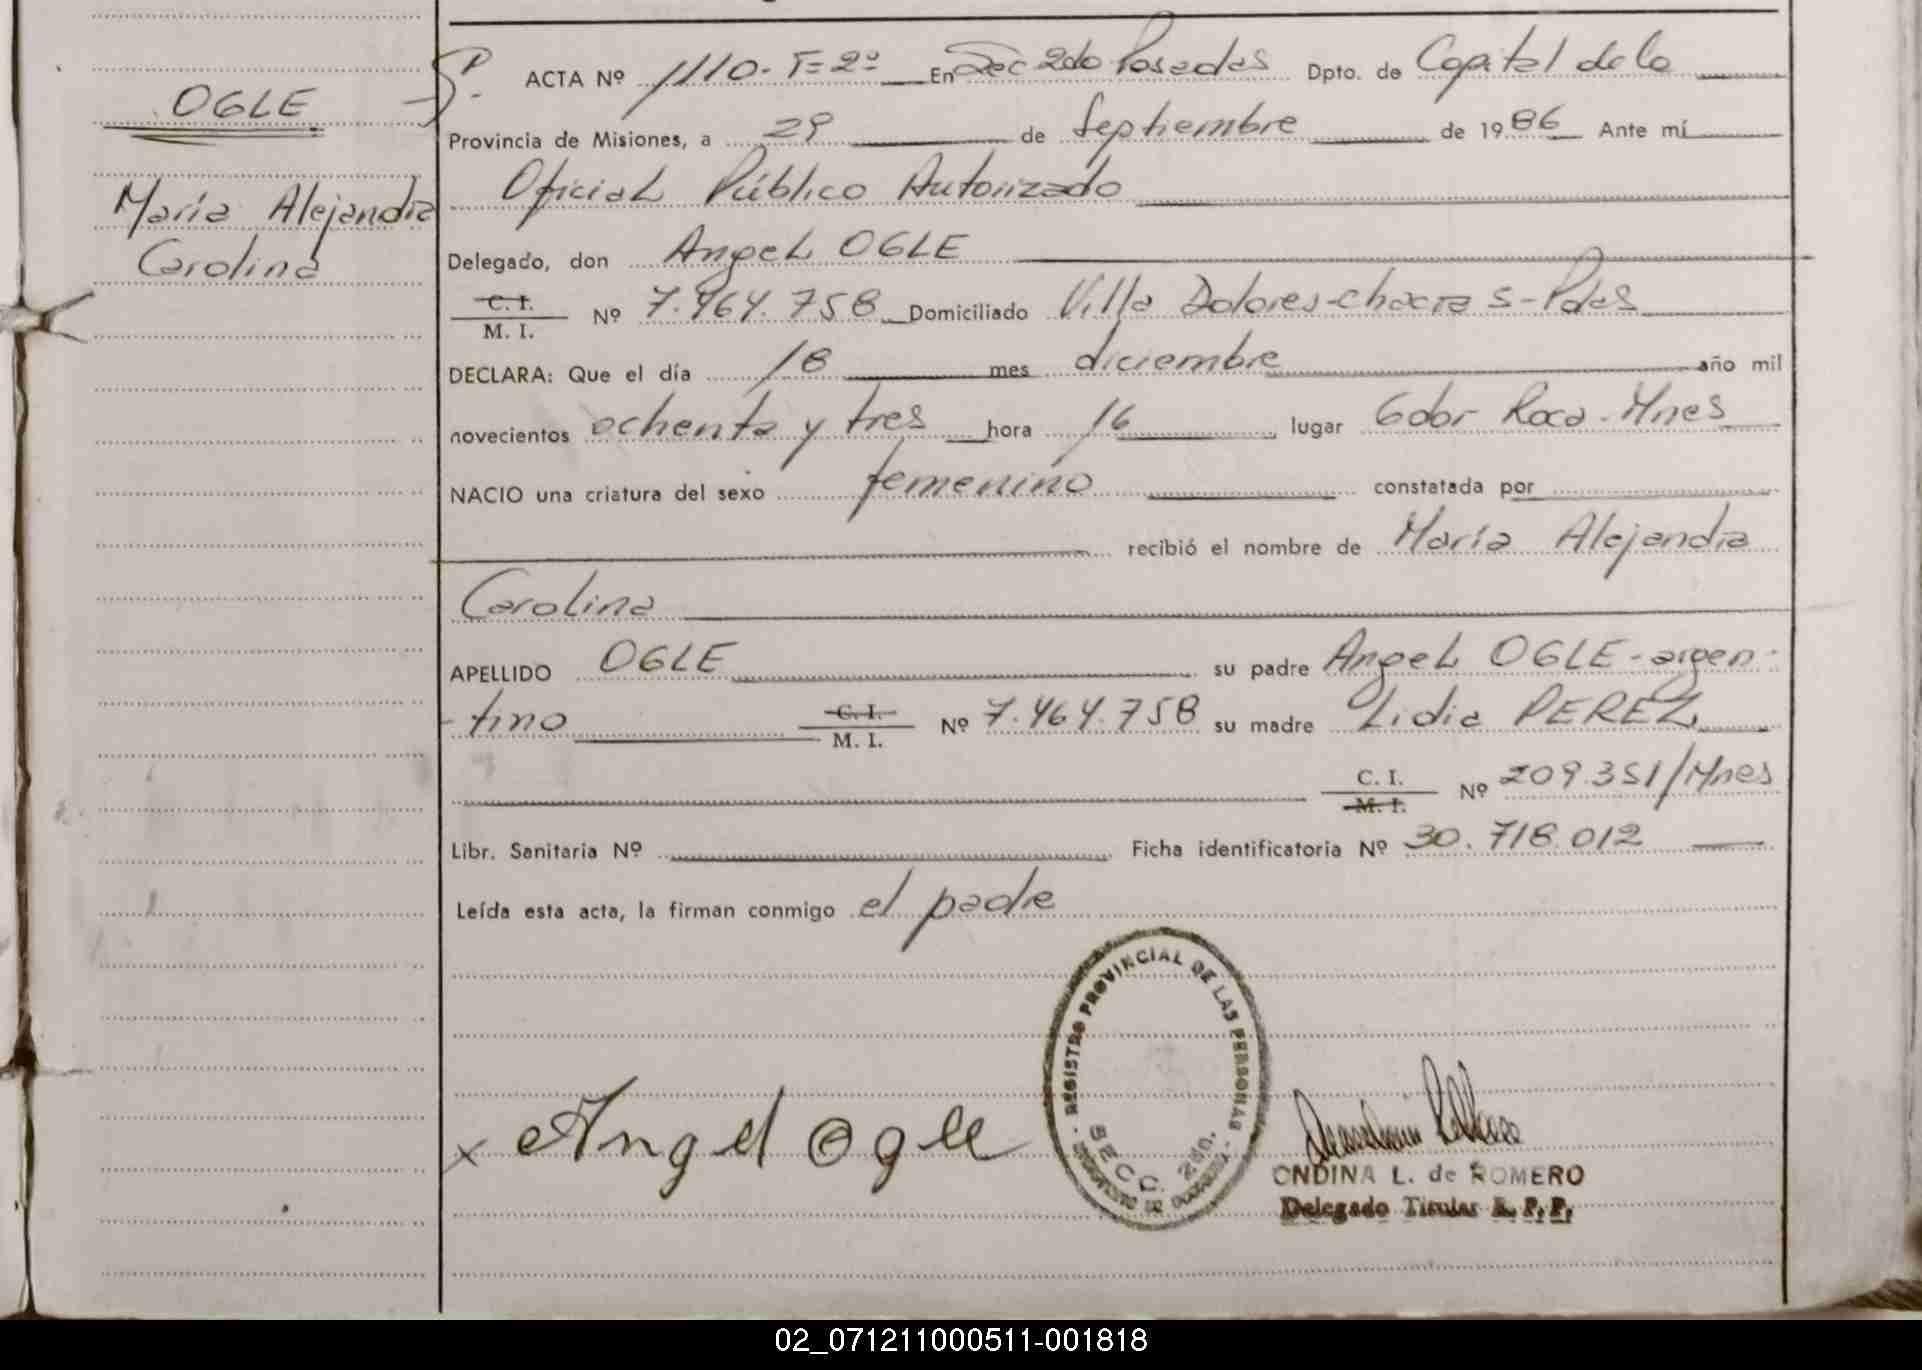 OGLE
María Alejandra
Carolina
ACTA Nº 1110- T=2º En Sec 2do Posadas Dpto. de Capital de la
Provincia de Misiones, a 29 de Septiembre de 1986 Ante mí
Oficial Público Autorizado
Delegado, don Angel OGLE
C. I.
M. I. Nº 7.464.758 Domiciliado Villa Dolores-chacra 5-Pdas
DECLARA: Que el día 18 mes diciembre año mil
novecientos ochenta y tres hora 16 lugar Gdor Roca-Mnes
NACIO una criatura del sexo femenino constatada por
recibió el nombre de María Alejandra
Carolina
APELLIDO OGLE su padre Angel OGLE-argen-
-tino C. I.
M. I. Nº 7.464.758 su madre Lidia PEREZ
C. I.
M. I. Nº 209.351/Mnes
Libr. Sanitaria Nº Ficha identificatoria Nº 30.718.012
Leída esta acta, la firman conmigo el padre
REGISTRO PROVINCIAL DE LAS PERSONAS
SECC. 2da.
x Angel Ogle
ONDINA L. de ROMERO
Delegado Titular R. P. P.
02_071211000511-001818